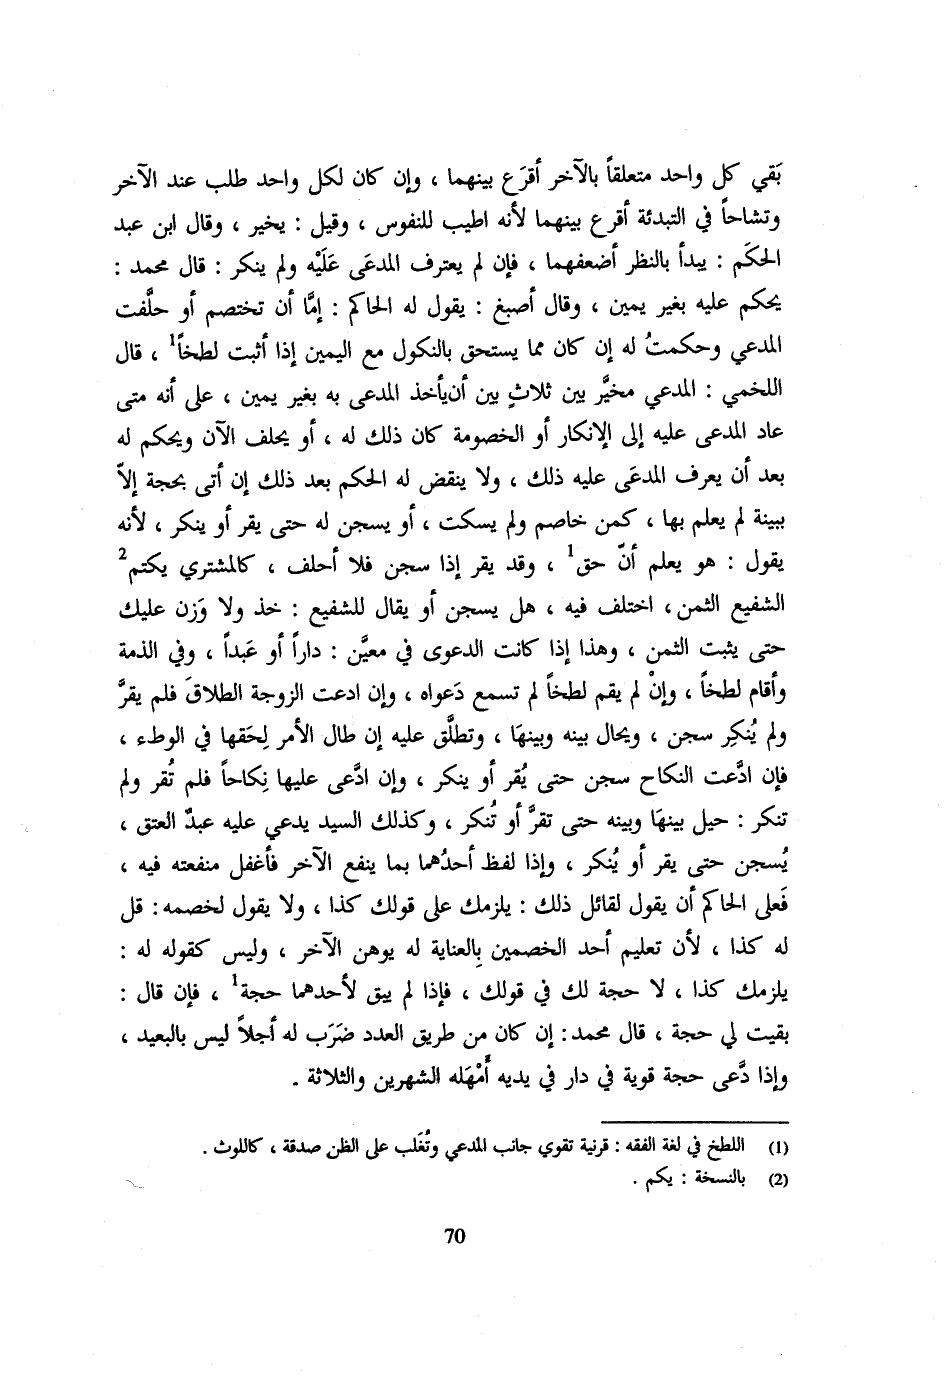 بَقي كل واحد متعلقاً بالآخر أقرَع بينهما ، وإن كان لكل واحد طلب عند الآخر
وتشاحاً في التبدئة أقرع بينهما لأنه اطيب للنفوس ، وقيل : يخير ، وقال ابن عبد
الحكَم : يبدأ بالنظر أضعفهما ، فإن لم يعترف المدعَى عَلَيْه ولم ينكر : قال محمد :
يحكم عليه بغير يمين ، وقال أصبغ : يقول له الحاكم : إمَّا أن تختصم أو حلَّفت
المدعي وحكمتُ له إن كان مما يستحق بالنكول مع اليمين إذا أثبت لطخاً1 ، قال
اللخمي : المدعي مخيَّر بين ثلاثٍ بين أن يأخذ المدعى به بغير يمين ، على أنه متى
عاد المدعى عليه إلى الإنكار أو الخصومة كان ذلك له ، أو يحلف الآن ويحكم له
بعد أن يعرف المدعَى عليه ذلك ، ولا ينقض له الحكم بعد ذلك إن أتى بحجة إلاّ
ببينة لم يعلم بها ، كمن خاصم ولم يسكت ، أو يسجن له حتى يقر أو ينكر ، لأنه
يقول : هو يعلم أنّ حق1 ، وقد يقر إذا سجن فلا أحلف ، كالمشتري يكتم2
الشفيع الثمن ، اختلف فيه ، هل يسجن أو يقال للشفيع : خذ ولا وَزن عليك
حتى يثبت الثمن ، وهذا إذا كانت الدعوى في معيَّن : داراً أو عَبداً ، وفي الذمة
وأقام لطخاً ، وإنْ لم يقم لطخاً لم تسمع دَعواه ، وإن ادعت الزوجة الطلاقَ فلم يقرَّ
ولم يُنكِر سجن ، ويحال بينه وبينهَا ، وتطلَّق عليه إن طال الأمر لِحَقها في الوطء ،
فإن ادَّعت النكاح سجن حتى يُقر أو ينكر ، وإن ادَّعى عليها نِكاحاً فلم تُقر ولم
تنكر : حيل بينهَا وبينه حتى تقرَّ أو تُنكر ، وكذلك السيد يدعي عليه عبدٌ العتق ،
يُسجن حتى يقر أو يُنكر ، وإذا لفظ أحدُهما بما ينفع الآخر فأغفل منفعته فيه ،
فَعلى الحاكم أن يقول لقائل ذلك : يلزمك على قولك كذا ، ولا يقول لخصمه : قل
له كذا ، لأن تعليم أحد الخصمين بِالعناية له يوهن الآخر ، وليس كقوله له :
يلزمك كذا ، لا حجة لك في قولك ، فإذا لم يبق لأحدهما حجة1 ، فإن قال :
بقيت لي حجة ، قال محمد : إن كان من طريق العدد ضَرَب له أجلاً ليس بالبعيد ،
وإذا دَّعى حجة قوية في دار في يديه أُمْهَله الشهرين والثلاثة .
(1) اللطخ في لغة الفقه : قرنية تقوي جانب المدعي وتُغَلب على الظن صدقة ، كاللوث .
(2) بالنسخة : يكم .
70